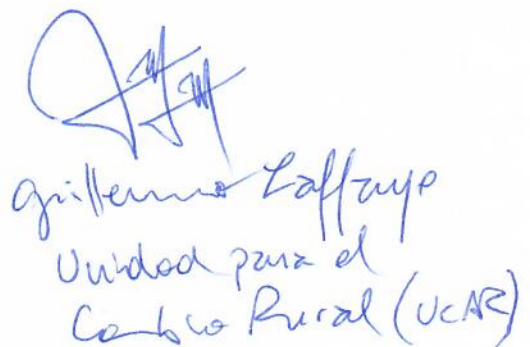 Guillermo Laffaye
Unidad para el
Cambio Rural (UCAR)